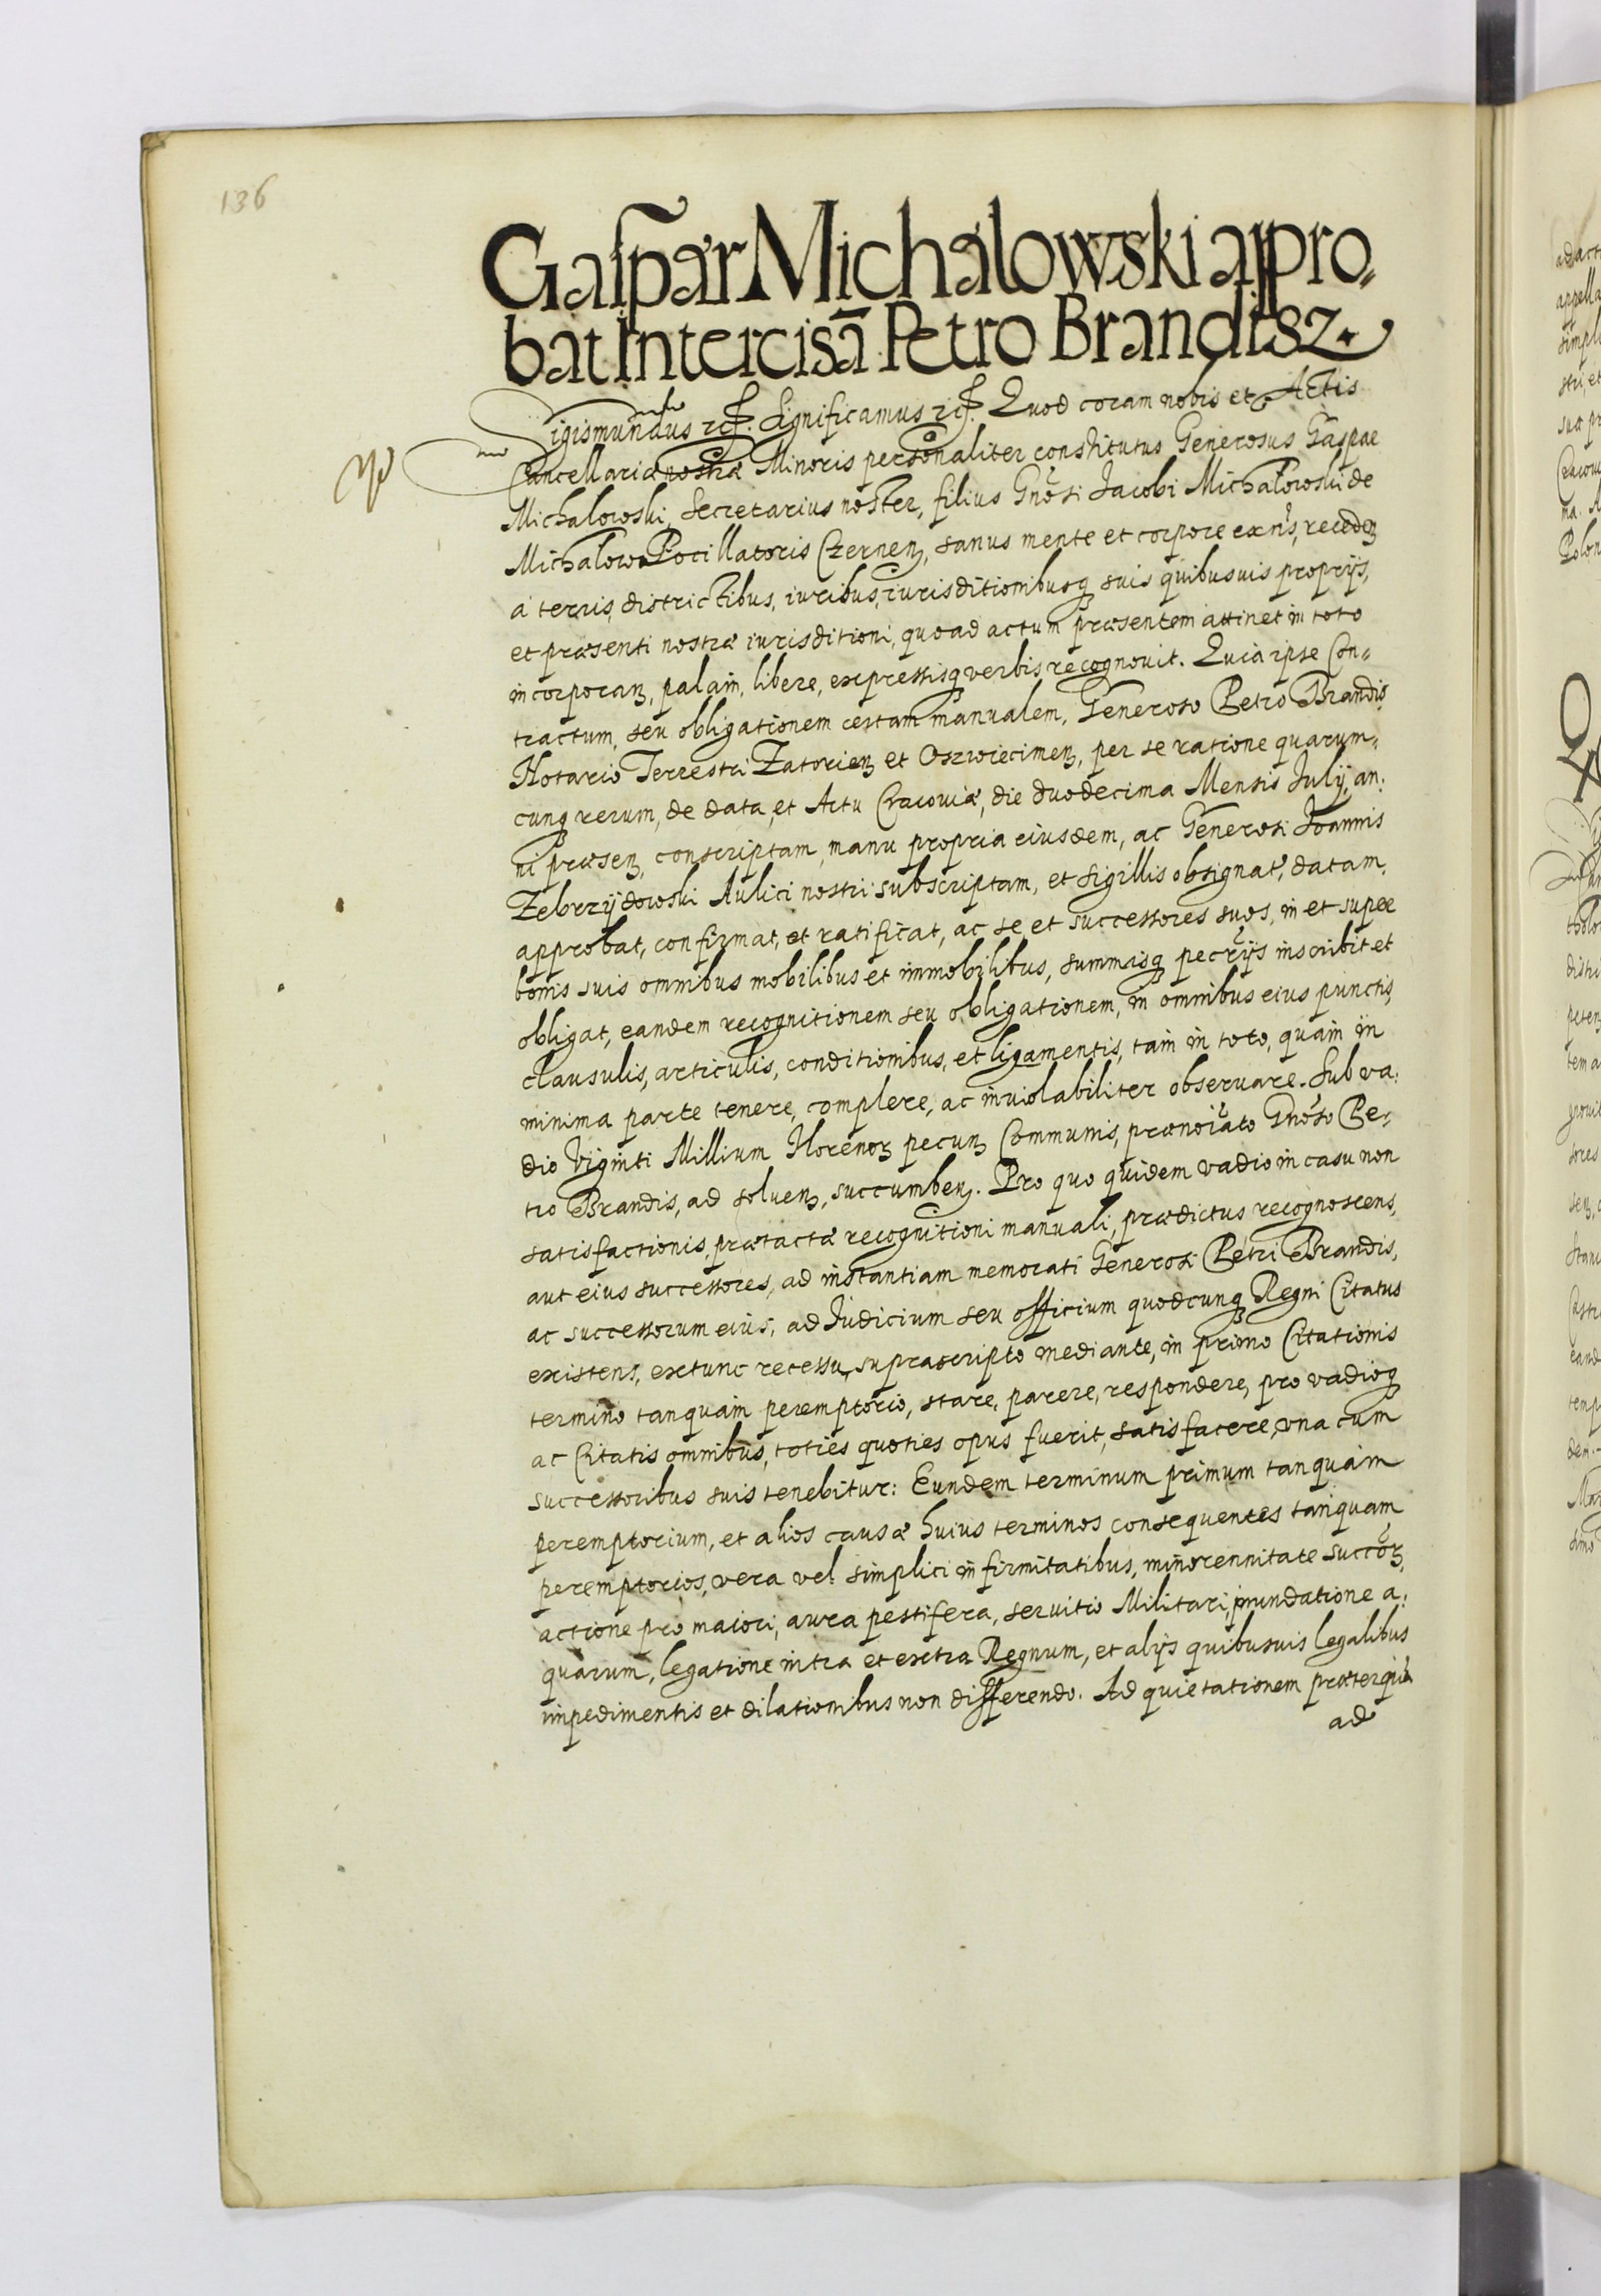 136
Gaspar Michalowski appro„
bat Intercisā Petro Brandisz.
Sigismundus etc. Significamus etc. Quod coram nobis et Actis
Cancellariæ nostræ Minoris personaliter constitutus Generosus Gaspar
Michalowski, Secretarius noster, filius Gnosi Jacobi Michalowski de
Michalow Pocillatoris Czernen, sanus mente et corpore exns, receden
a terris, districtibus, iuribus, iurisditionibusq suis quibusuis proprijs,
et præsenti nostræ iurisditioni, quoad actum præsentem attinet in toto
incorporan, palam, libere, expressisq verbis recognouit. Quia ipse Con„
tractum, seu obligationem certam manualem, Generoso Petro Brandis
Notario Terrestri Zatorien et Oszwiecimen, per se ratione quarum„
cunq rerum, de data, et Actu Cracouiæ, die duodecima Mensis Julij, an:
ni præsen, conscriptam, manu propria eiusdem, ac Generosi Joannis
Zebrzijdowski Aulici nostri subscriptam, et sigillis obsignat, datam,
approbat, confirmat, et ratificat, ac se et successores suos, in et super
bonis suis omnibus mobilibus et immobilibus, summisq pecrijs inscribit et
obligat, eandem recognitionem seu obligationem, in omnibus eius punctis,
clausulis, articulis, conditionibus, et ligamentis, tam in toto, quam in
minima parte tenere, complere, ac inuiolabiliter obseruare. Sub va:
dio Viginti Millium Florenoꝝ pecun Communis, prænoiato Gnoso Pe„
tro Brandis, ad soluen, succumben. Pro quo quidem vadio in casu non
satisfactionis, prætactæ recognitioni manuali, prædictus recognoscens,
aut eius successores, ad instantiam memorati Generosi Petri Brandis,
ac successorum eius, ad Judicium seu officium quodcunq Regni Citatus
existens, extunc recessu suprascripto mediante, in primo Citationis
termino tanquam peremptorio, stare, parere, respondere, pro vadioq
ac Citatis omnibus, toties quoties opus fuerit, satisfacere, vna cum
successoribus suis tenebitur: Eundem terminum primum tanquam
peremptorium, et alios causæ huius terminos consequentes tanquam
peremptorios, vera vel simplici infirmitatibus, minorennitate succoꝝ,
actione pro maiori, aura pestifera, seruitio Militari, inundatione a:
quarum, legatione intra et extra Regnum, et alijs quibusuis legalibus
impedimentis et dilationibus non differendo. Ad quietationem præterquā
ad